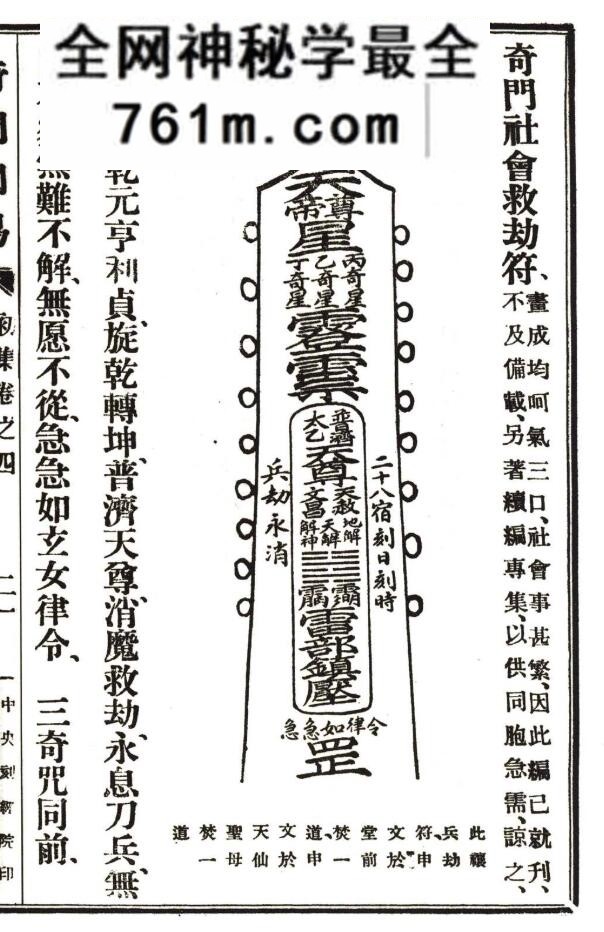 全网神秘学最全
761m.com
奇門社會救劫符、
畫成均呵氣三口、社會事甚繁、因此編已就刊、
不及備載、另著續編專集、以供同胞急需、諒之、
天
帝尊
星
丙奇星
乙奇星
丁奇星
普濟
太乙
天尊
天赦
文昌
地解
天解
解神
雷部鎮壓
二十八宿刻日刻時
兵劫永消
急急如律令
罡
此禳
兵劫
符、申
文於
堂前
焚一
道、申
文於
天仙
聖母
焚一
道
乾元亨利貞、旋乾轉坤、普濟天尊、消魔救劫、永息刀兵、無
難不解、無愿不從、急急如玄女律令、 三奇咒同前、
初集卷之四
二一
中央刻經院印